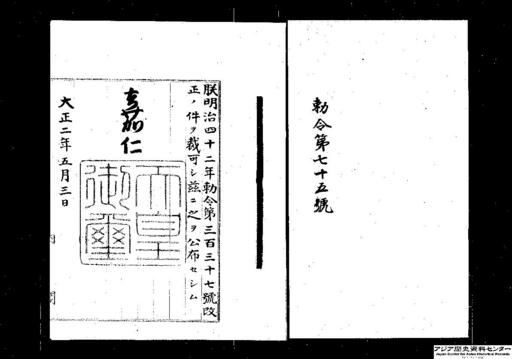 勅令第七十五號
朕明治四十二年勅令第三百三十七號改
正ノ件ヲ裁可シ茲ニ之ヲ公布セシム
嘉仁
天皇
御璽
大正二年五月三日
アジア歴史資料センター
Japan Center for Asian Historical Records